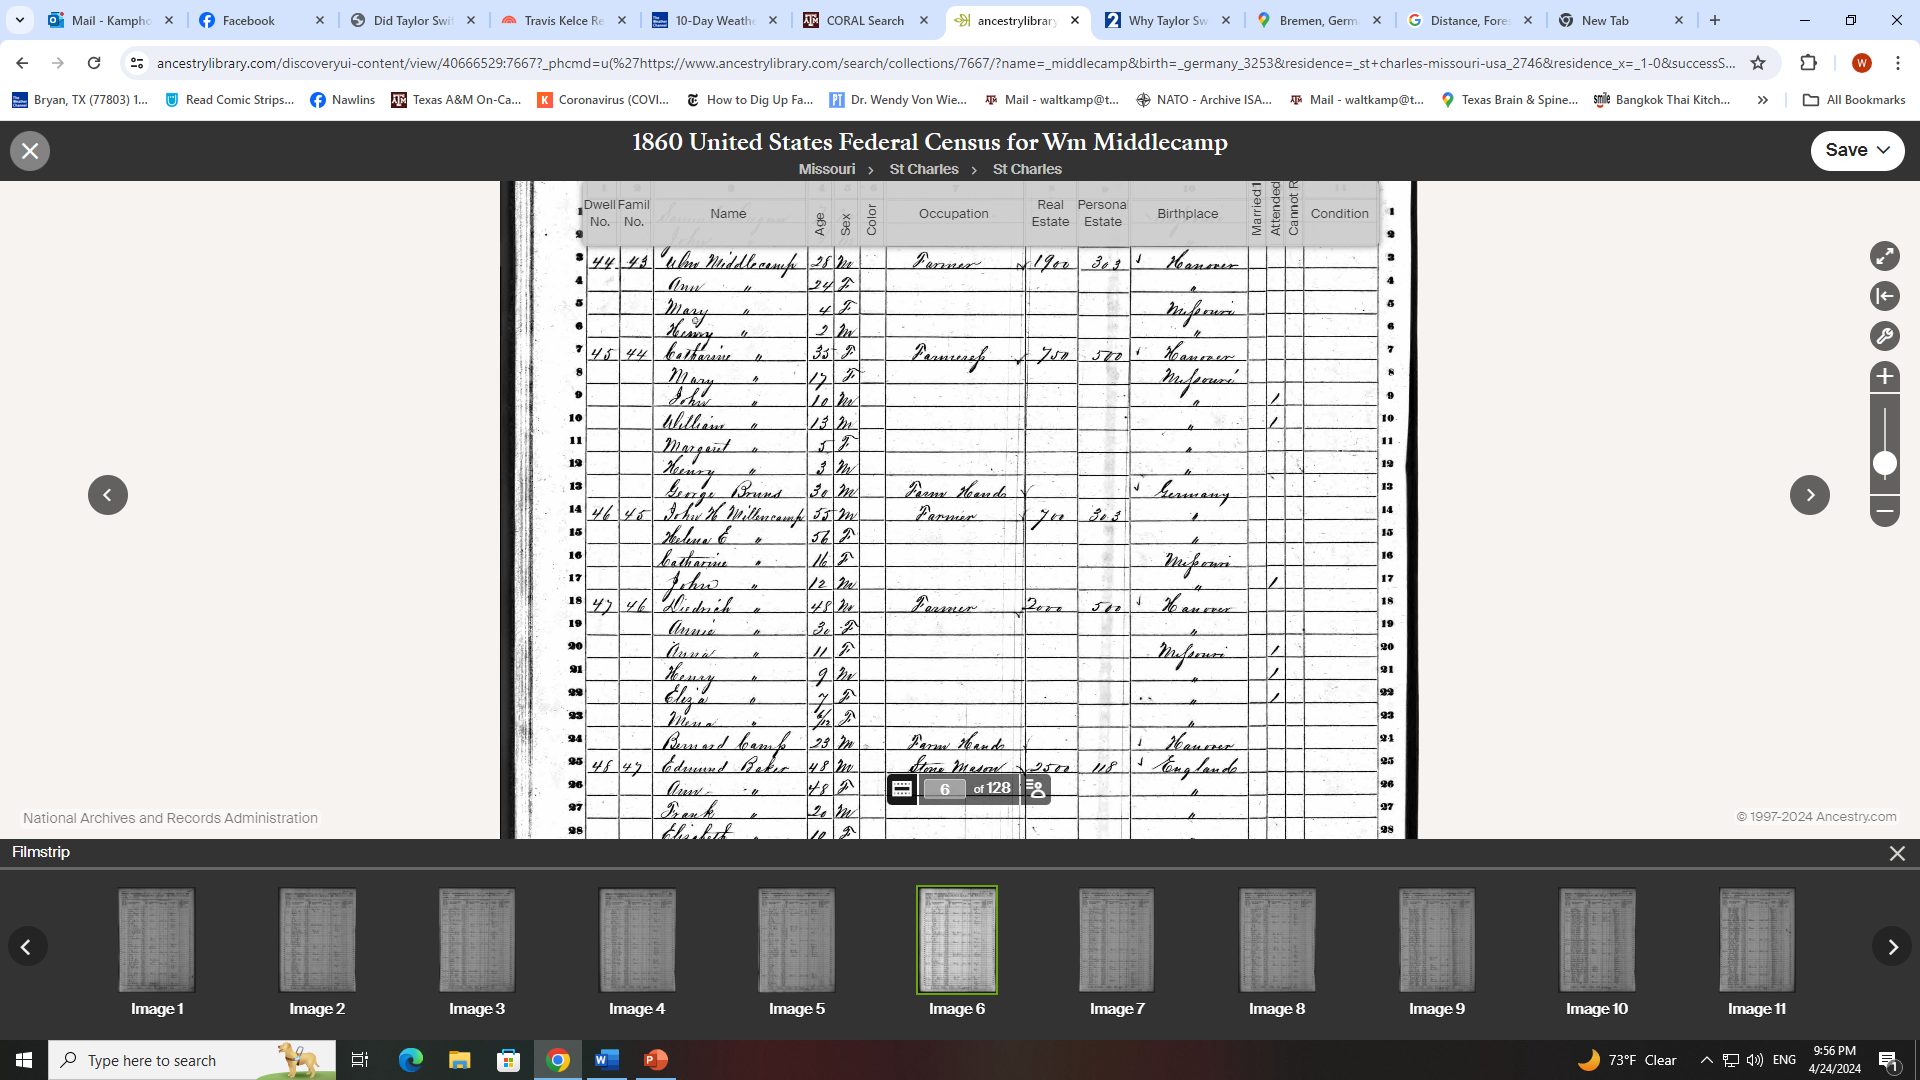 Mail - Kampho
Facebook
Did Taylor Swi
Travis Kelce Re
10-Day Weathe
CORAL Search
ancestrylibrary
Why Taylor Sw
Bremen, Germ
Distance, Fore
New Tab
ancestrylibrary.com/discoveryui-content/view/40666529:7667?_phcmd=u(%27https://www.ancestrylibrary.com/search/collections/7667/?name=_middlecamp&birth=_germany_3253&residence=_st+charles-missouri-usa_2746&residence_x=_1-0&successS...
W
Bryan, TX (77803) 1...
Read Comic Strips...
Nawlins
Texas A&M On-Ca...
Coronavirus (COVI...
How to Dig Up Fa...
Dr. Wendy Von Wie...
Mail - waltkamp@t...
NATO - Archive ISA...
Mail - waltkamp@t...
Texas Brain & Spine...
Bangkok Thai Kitch...
All Bookmarks
1860 United States Federal Census for Wm Middlecamp
Missouri > St Charles > St Charles
Save
Dwell No. Famil No. Name Age Sex Color Occupation Real Estate Personal Estate Birthplace Married1 Attended Cannot R Condition
1 1
2 2
3 44 43 Wm Middlecamp 28 M Farmer 1900 303 Hanover 3
4 Ann " 24 F " 4
5 Mary " 4 F Missouri 5
6 Henry " 2 M " 6
7 45 44 Catharine " 35 F Farmeress 750 500 Hanover 7
8 Mary " 17 F Missouri 8
9 John " 10 M " 1 9
10 William " 13 M " 1 10
11 Margaret " 5 F " 11
12 Henry " 3 M " 12
13 George Bruns 30 M Farm Hands Germany 13
14 46 45 John H Millencamp 55 M Farmer 700 303 " 14
15 Helena E " 56 F " 15
16 Catharine " 16 F Missouri 16
17 John " 12 M " 1 17
18 47 46 Diedrich " 48 M Farmer 2000 500 Hanover 18
19 Annie " 30 F " 19
20 Anna " 11 F Missouri 1 20
21 Henry " 9 M " 1 21
22 Eliza " 7 F " 1 22
23 Mena " F " 23
24 Bernard Camp 23 M Farm Hands Hanover 24
25 48 47 Edmund Baker 48 M Stone Mason 2500 118 England 25
26 Ann " 48 F " 26
27 Frank " 20 M " 27
28 Elizabeth 10 F 28
6 of 128
National Archives and Records Administration
© 1997-2024 Ancestry.com
Filmstrip
Image 1
Image 2
Image 3
Image 4
Image 5
Image 6
Image 7
Image 8
Image 9
Image 10
Image 11
Type here to search
73°F Clear
ENG
9:56 PM
4/24/2024
1